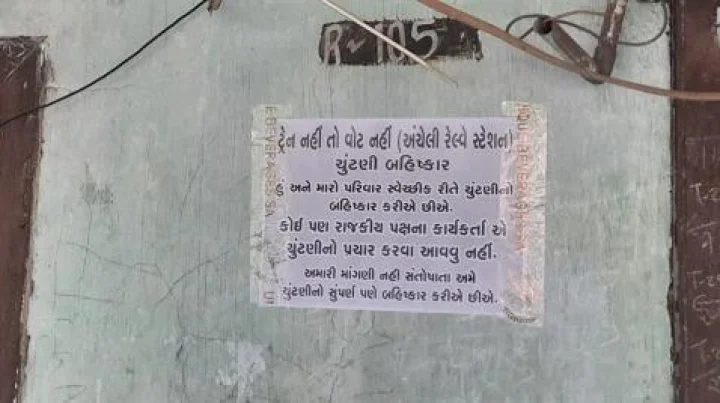 R-105
ટ્રેન નહીં તો વોટ નહીં (અંચેલી રેલ્વે સ્ટેશન)
ચુંટણી બહિષ્કાર
હું અને મારો પરિવાર સ્વેચ્છીક રીતે ચુંટણીનો
બહિષ્કાર કરીએ છીએ.
કોઈ પણ રાજકીય પક્ષના કાર્યકર્તા એ
ચુંટણીનો પ્રચાર કરવા આવવુ નહીં.
અમારી માંગણી નહી સંતોપાતા અમે
ચુંટણીનો સુંપર્ણ પણે બહિષ્કાર કરીએ છીએ.